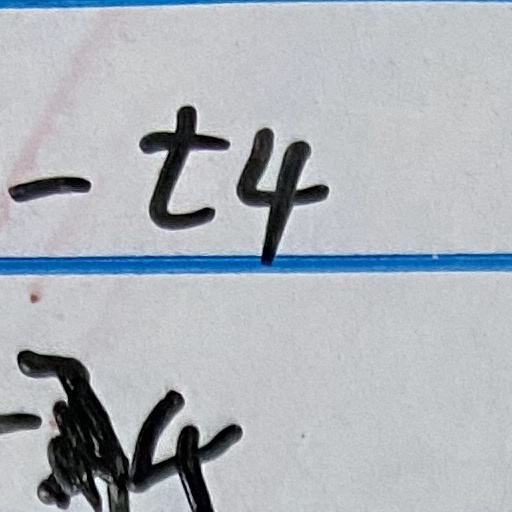 - t4
- 4